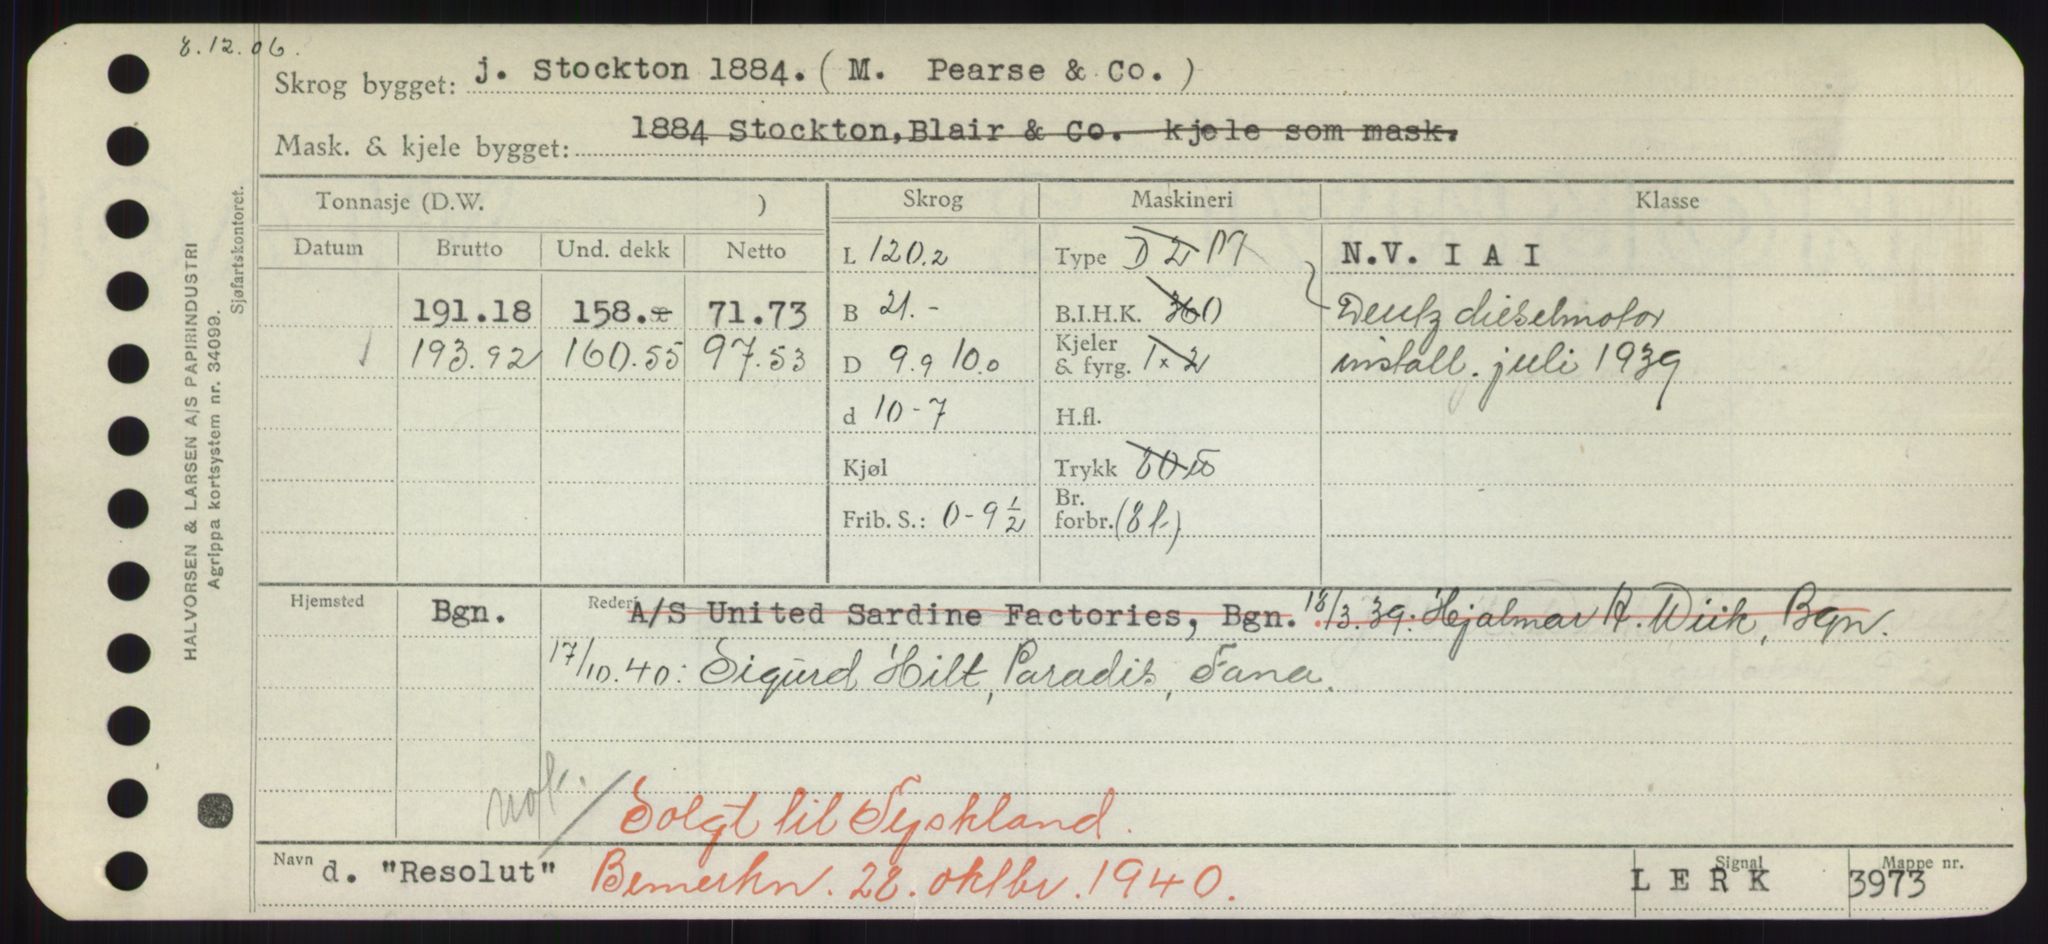 8.12.06.
Skrog bygget: j. Stockton 1884. (M. Pearse & Co.)
Mask. & kjele bygget: 1884 Stockton, Blair & Co. kjele som mask.
Tonnasje (D.W. ) Skrog Maskineri Klasse
Datum Brutto Und. dekk Netto
L 120.2 Type D 2 M N.V. I A I
191.18 158.- 71.73 B 21.- B.I.H.K. 360 Deutz dieselmotor
193.92 160.55 97.53 D 9.9 10.0 Kjeler & fyrg. 1 x 2 install. juli 1939
d 10-7 H.fl.
Kjøl Trykk
Frib. S.: 0-9 1/2 Br. forbr. (8 t.)
Hjemsted Bgn. Rederi A/S United Sardine Factories, Bgn. 18/3.39: Hjalmar R. Wiik, Bgn.
17/10.40: Sigurd Hilt, Paradis, Fana.
not.
Solgt til Tyskland.
Navn d. "Resolut" Bemerkn. 28. oktbr. 1940. Signal L E R K Mappe nr. 3973
HALVORSEN & LARSEN A/S PAPIRINDUSTRI
Agrippa kortsystem nr. 34099.
Sjøfartskontoret.